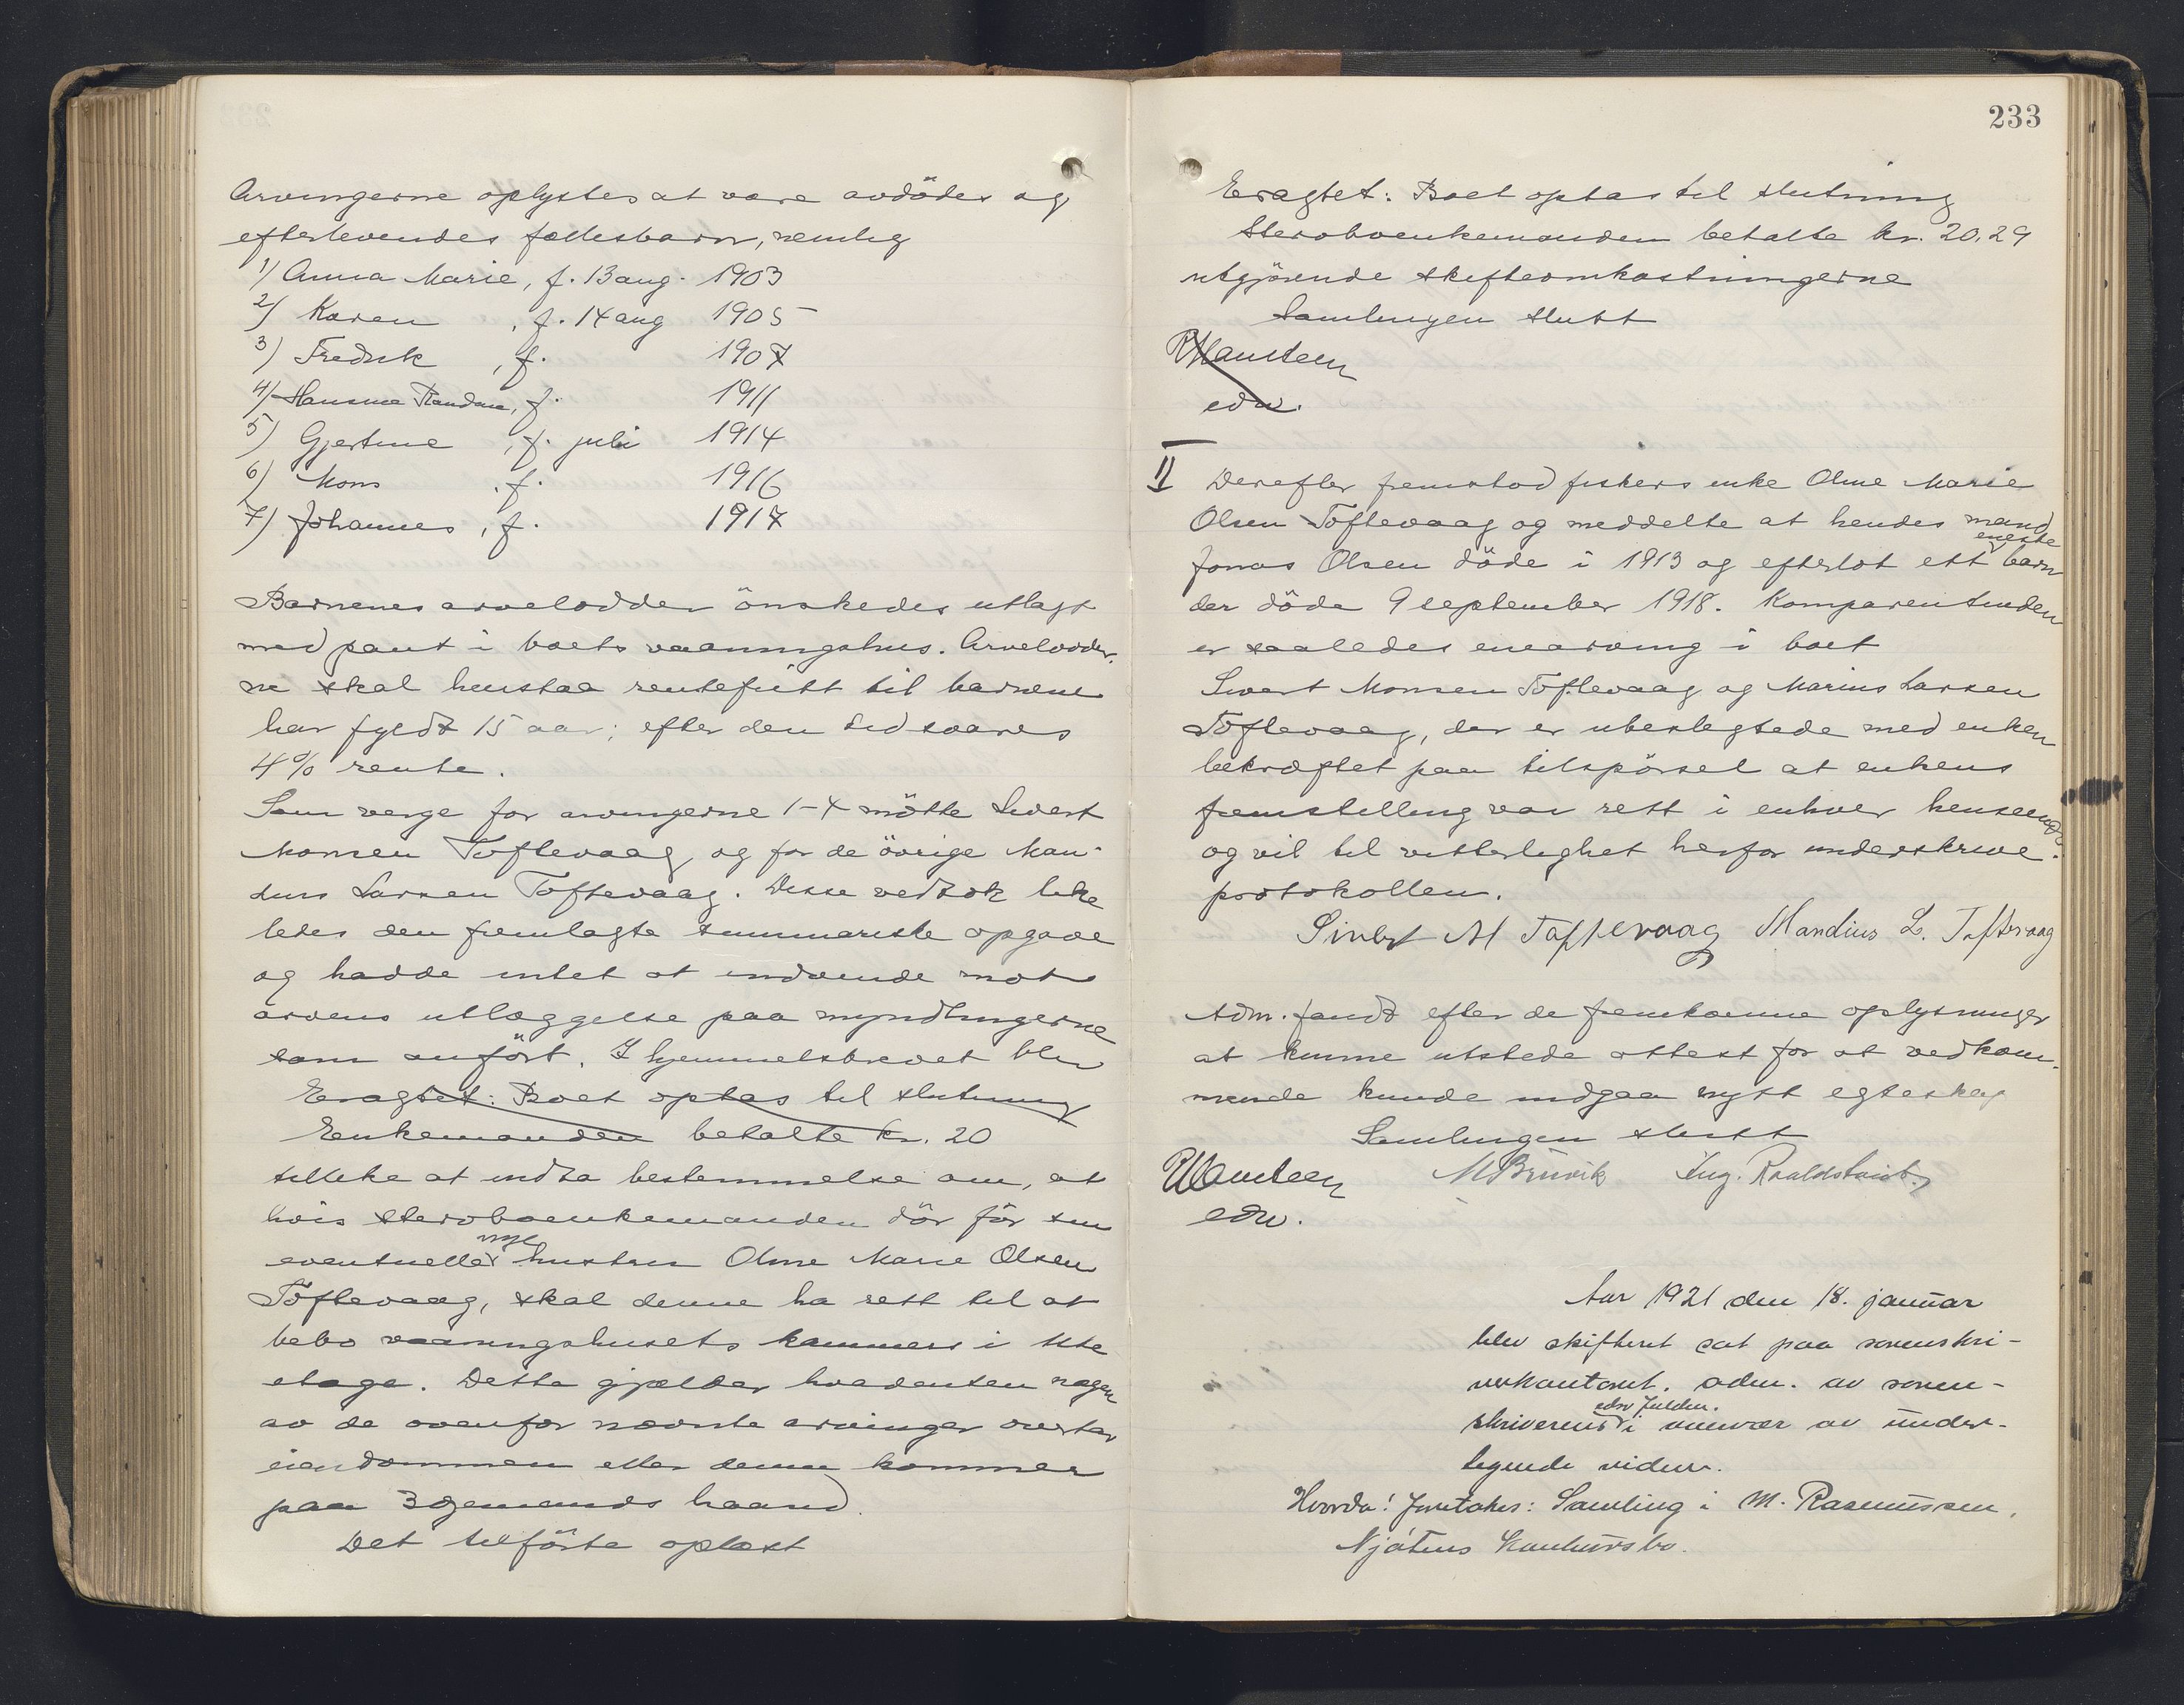 Arvingerne oplystes at være avdödes og
efterlevendes fællesbarn, nemlig
1) Anna Marie, f. 13 aug. 1903
2) Karen , f. 14 aug 1905
3) Fredrik , f. 1907
4) Hansine Randine, f. 1911
5) Gjertine , f. juli 1914
6) Mons , f. 1916
7) Johannes , f. 1917
Barnenes arvelodder önskedes utlagt
med pant i boets vaaningshus. Arvelodder-
ne skal henstaa rentefritt til barnene
har fyldt 15 aar; efter den tid svares
4% rente.
Som verge for arvingerne 1-4 mötte Sivert
Monsen Toftevaag, og for de övrige Man-
dius Larsen Toftevaag. Disse vedtok like
ledes den fremlagte summariske opgave
og hadde intet at indvende mot
arvens utlæggelse paa myndlingerne
som anfört. I hjemmelsbrevet blir
Eragtet: Boet optas til slutning
Enkemanden betalte kr. 20
tillike at indta bestemmelse om, at
hvis stervboenkemanden dör för sin
eventuelle nye hustru Oline Marie Olsen
Toftevaag, skal denne ha rett til at
bebo vaaningshusets kammers i 1ste
etage. Dette gjælder hvadenten nogen
av de ovenfor nævnte arvinger overtar
eiendommen eller denne kommer
paa 3djemands haand.
Det tilförte oplæst
233
Eragtet: Boet optas til slutning
Stervboenkemanden betalte kr. 20,29
utgjörende skifteomkostningerne
Samlingen slutt
R Hansteen
edw.
II Derefter fremstod fiskers enke Oline Marie
Olsen Toftevaag og meddelte at hendes mand
Jonas Olsen döde i 1913 og efterlot ett eneste barn
der döde 9 september 1918. Komparentinden
er saaledes enearving i boet
Sivert Monsen Toftevaag og Marius Larsen
Toftevaag, der er ubeslegtede med enken
bekræftet paa tilspörsel at enkens
fremstilling var rett i enhver henseende
og vil til vitterlighet herfor underskrive
protokollen.
Sivert M Toftevaag Mandius L. Toftevaag
Adm. fandt efter de fremkomne oplysninger
at kunne utstede attest for at vedkom-
mende kunde indgaa nytt egteskap
Samlingen slutt
R Hansteen M Brüvik Ing. Roaldstveit
edw.
Aar 1921 den 18. januar
blev skifteret sat paa sorenskri-
verkontoret. adm. av soren-
skriverens edsv fuldm. i nærvær av under-
tegnede vidner.
Hvorda! Foretokes: Samling i M. Rasmussen,
konkursbo.